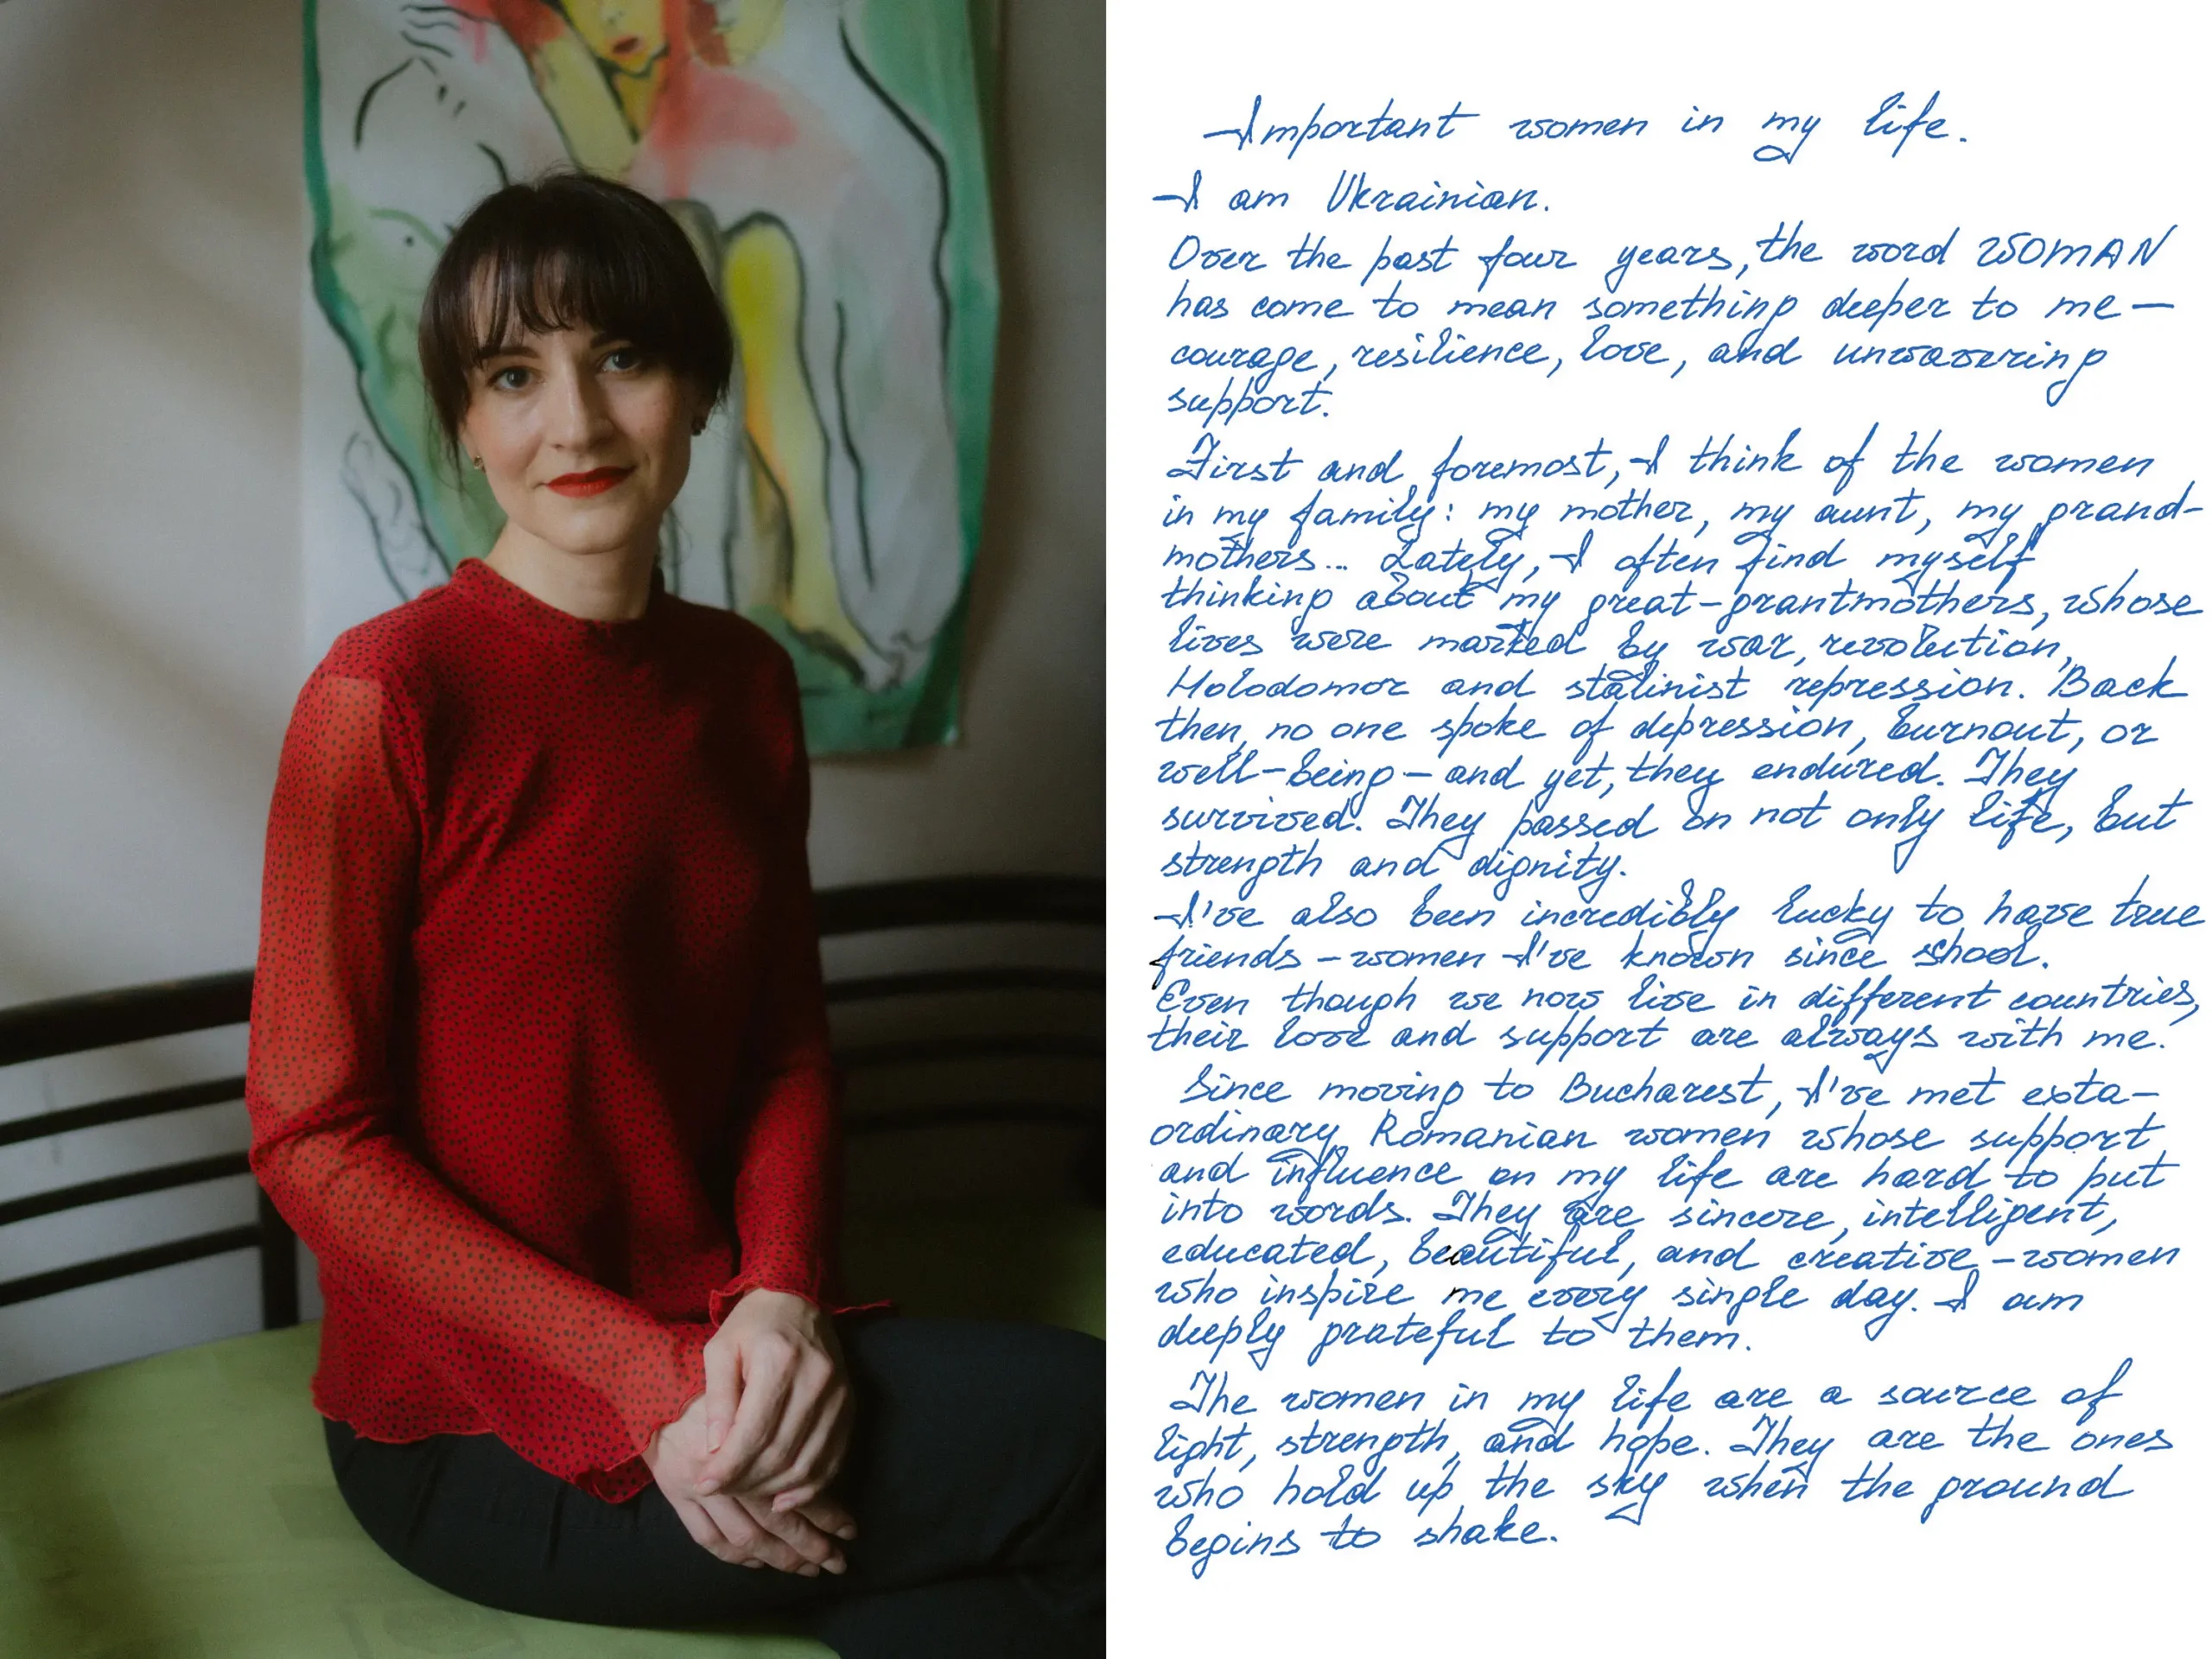 Important women in my life.
I am Ukrainian.
Over the past four years, the word WOMAN
has come to mean something deeper to me —
courage, resilience, love, and unwavering
support.
First and foremost, I think of the women
in my family: my mother, my aunt, my grand-
mothers... Lately, I often find myself
thinking about my great-grantmothers, whose
lives were marked by war, revolution,
Holodomor and stalinist repression. Back
then, no one spoke of depression, burnout, or
well-being – and yet, they endured. They
survived. They passed on not only life, but
strength and dignity.
I've also been incredibly lucky to have true
friends – women I've known since shool.
Even though we now live in different countries,
their love and support are always with me.
Since moving to Bucharest, I've met exta-
ordinary Romanian women whose support
and influence on my life are hard to put
into words. They are sincere, intelligent,
educated, beautiful, and creative – women
who inspire me every single day. I am
deeply grateful to them.
The women in my life are a source of
light, strength, and hope. They are the ones
who hold up the sky when the ground
begins to shake.